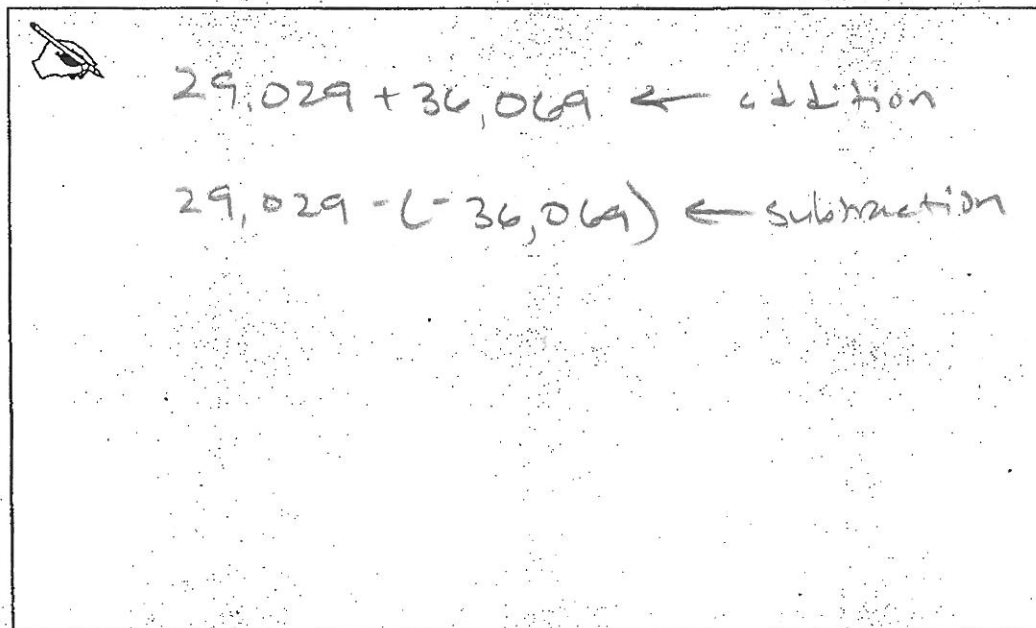 29,029 + 36,069 ← addition
29,029 - (-36,069) ← subtraction